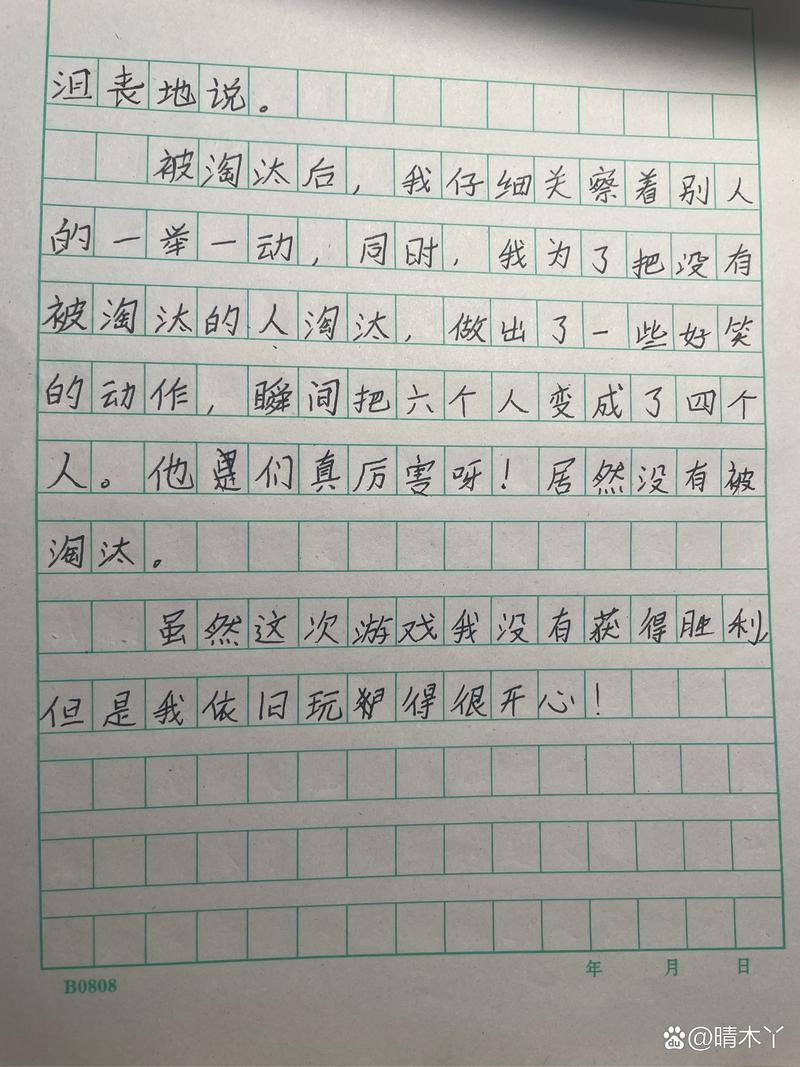 沮丧地说。
被淘汰后，我仔细关察着别人
的一举一动，同时，我为了把没有
被淘汰的人淘汰，做出了一些好笑
的动作，瞬间把六个人变成了四个
人。他们真厉害呀！居然没有被
淘汰。
虽然这次游戏我没有获得胜利，
但是我依旧玩得很开心！
B0808 年 月 日
Baidu @晴木丫